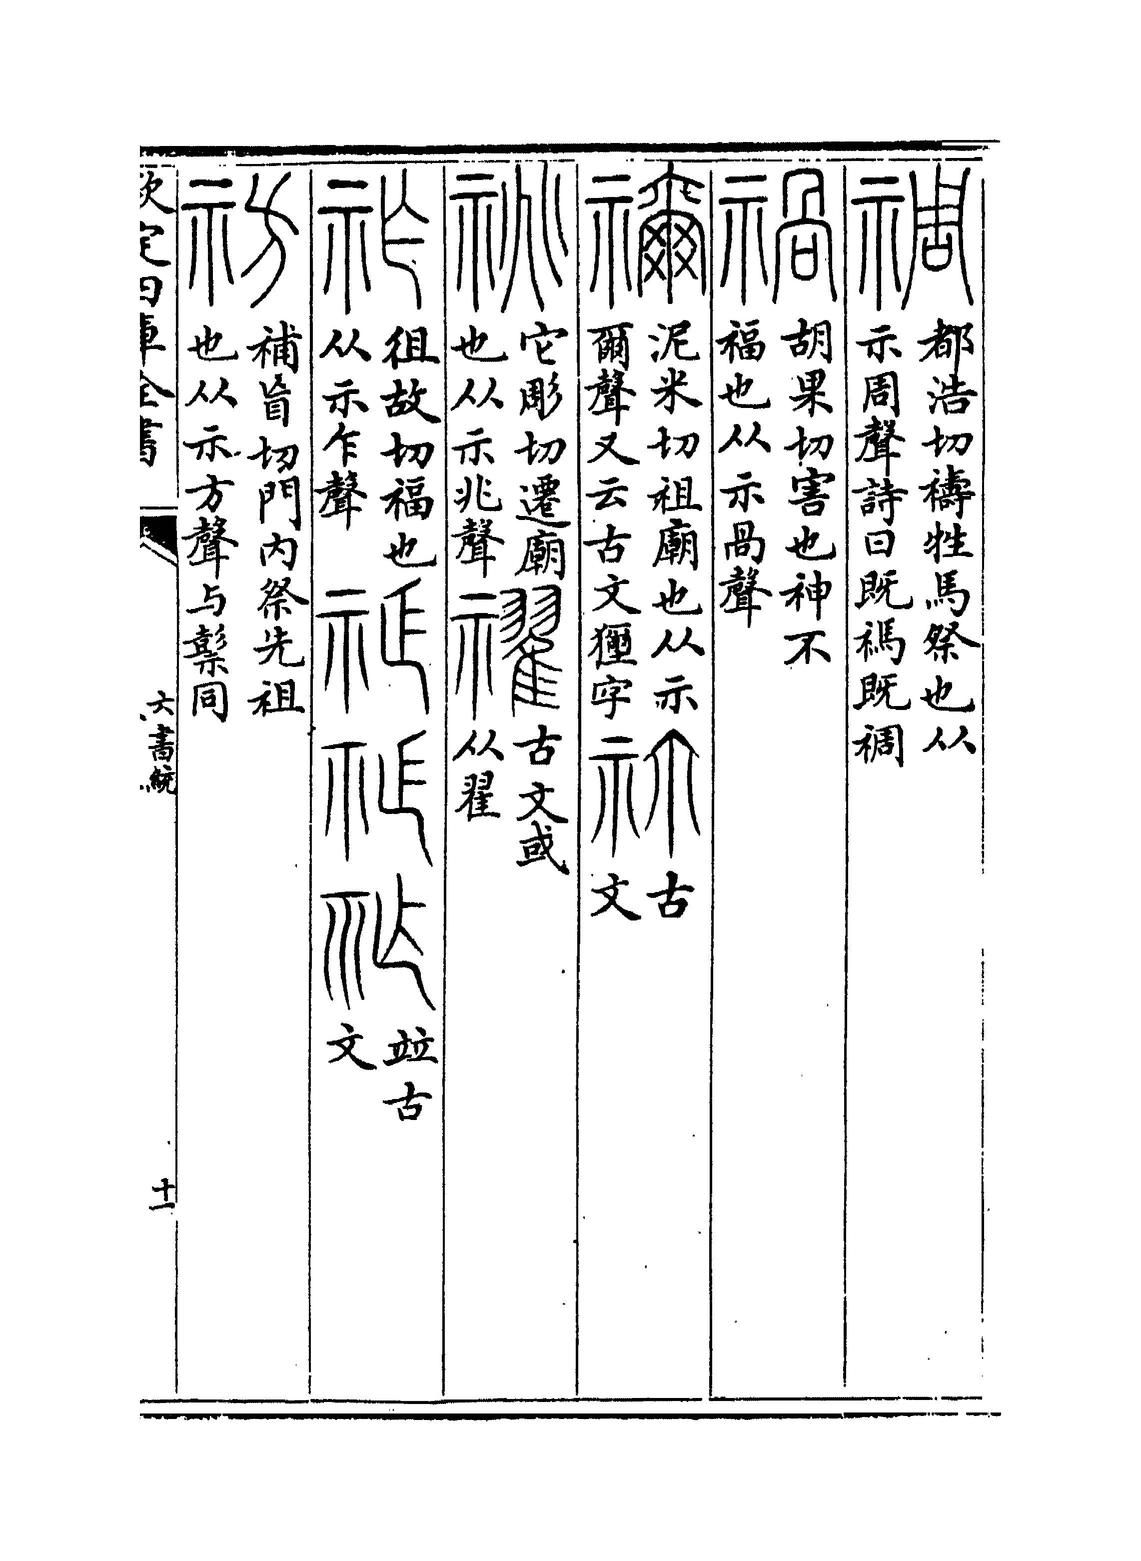 禂 都浩切禱牲馬祭也从
示周聲詩曰既禡既禂
禍 胡果切害也神不
福也从示咼聲
禰 泥米切祖廟也从示
爾聲又云古文獮字 古
文
祧 它彫切遷廟
也从示兆聲 古文或
从翟
祚 徂故切福也
从示乍聲 竝古
文
祊 補盲切門內祭先祖
也从示方聲与鬃同
欽定四庫全書
六書統
十一